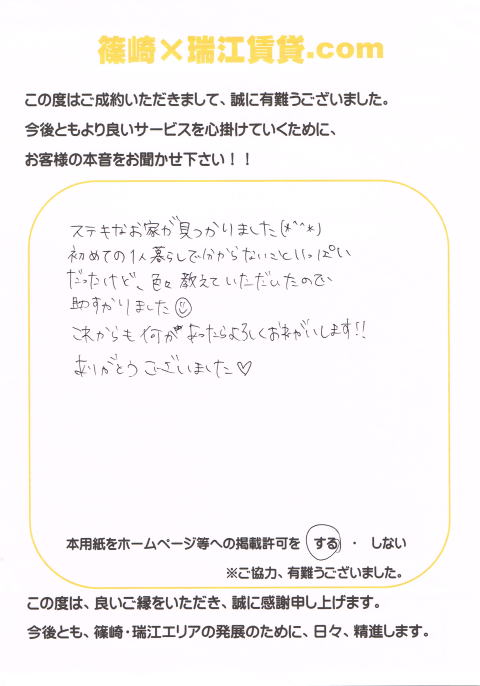 篠崎×瑞江賃貸.com
この度はご成約いただきまして、誠に有難うございました。
今後ともより良いサービスを心掛けていくために、
お客様の本音をお聞かせ下さい！！
ステキなお家が見つかりました(*^^*)
初めての1人暮らしで分からないこといっぱい
だったけど、色々教えていただいたので
助すかりました☺
これからも何かあったらよろしくおねがいします!!
ありがとうございました♡
本用紙をホームページ等への掲載許可を する ・ しない
※ご協力、有難うございました。
この度は、良いご縁をいただき、誠に感謝申し上げます。
今後とも、篠崎・瑞江エリアの発展のために、日々、精進します。